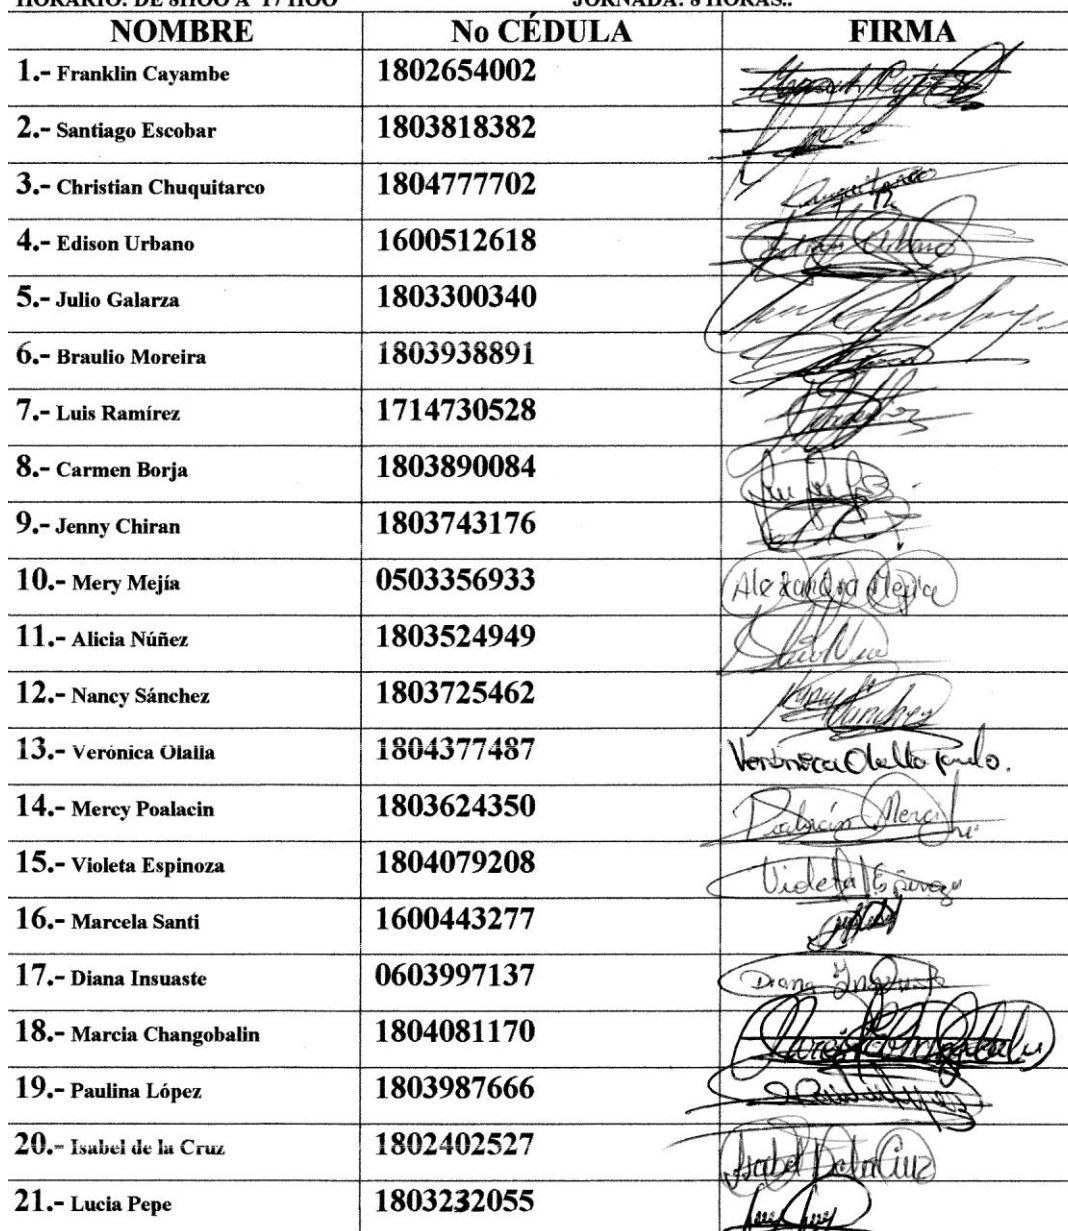 HORARIO: DE 8HOO A 17 HOO JORNADA: 8 HORAS..
NOMBRE No CÉDULA FIRMA
1.- Franklin Cayambe 1802654002
2.- Santiago Escobar 1803818382
3.- Christian Chuquitarco 1804777702
4.- Edison Urbano 1600512618
5.- Julio Galarza 1803300340
6.- Braulio Moreira 1803938891
7.- Luis Ramírez 1714730528
8.- Carmen Borja 1803890084
9.- Jenny Chiran 1803743176
10.- Mery Mejía 0503356933 Alexandra Mejia
11.- Alicia Núñez 1803524949
12.- Nancy Sánchez 1803725462 Nancy Sanchez
13.- Verónica Olalla 1804377487 Verónica Olalla
14.- Mercy Poalacin 1803624350 Poalacin Mercy
15.- Violeta Espinoza 1804079208 Violeta Espinoza
16.- Marcela Santi 1600443277
17.- Diana Insuaste 0603997137 Diana Insuaste
18.- Marcia Changobalin 1804081170
19.- Paulina López 1803987666
20.- Isabel de la Cruz 1802402527 Isabel De la Cruz
21.- Lucia Pepe 1803232055